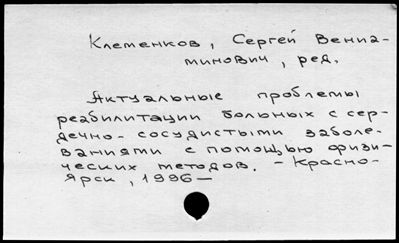 Клеменков, Сергей Вениа-
минович, ред.
Актуальные проблемы
реабилитации больных с сер-
дечно-сосудистыми заболе-
ваниями с помощью физи-
ческих методов. - Красно-
ярск, 1996 —